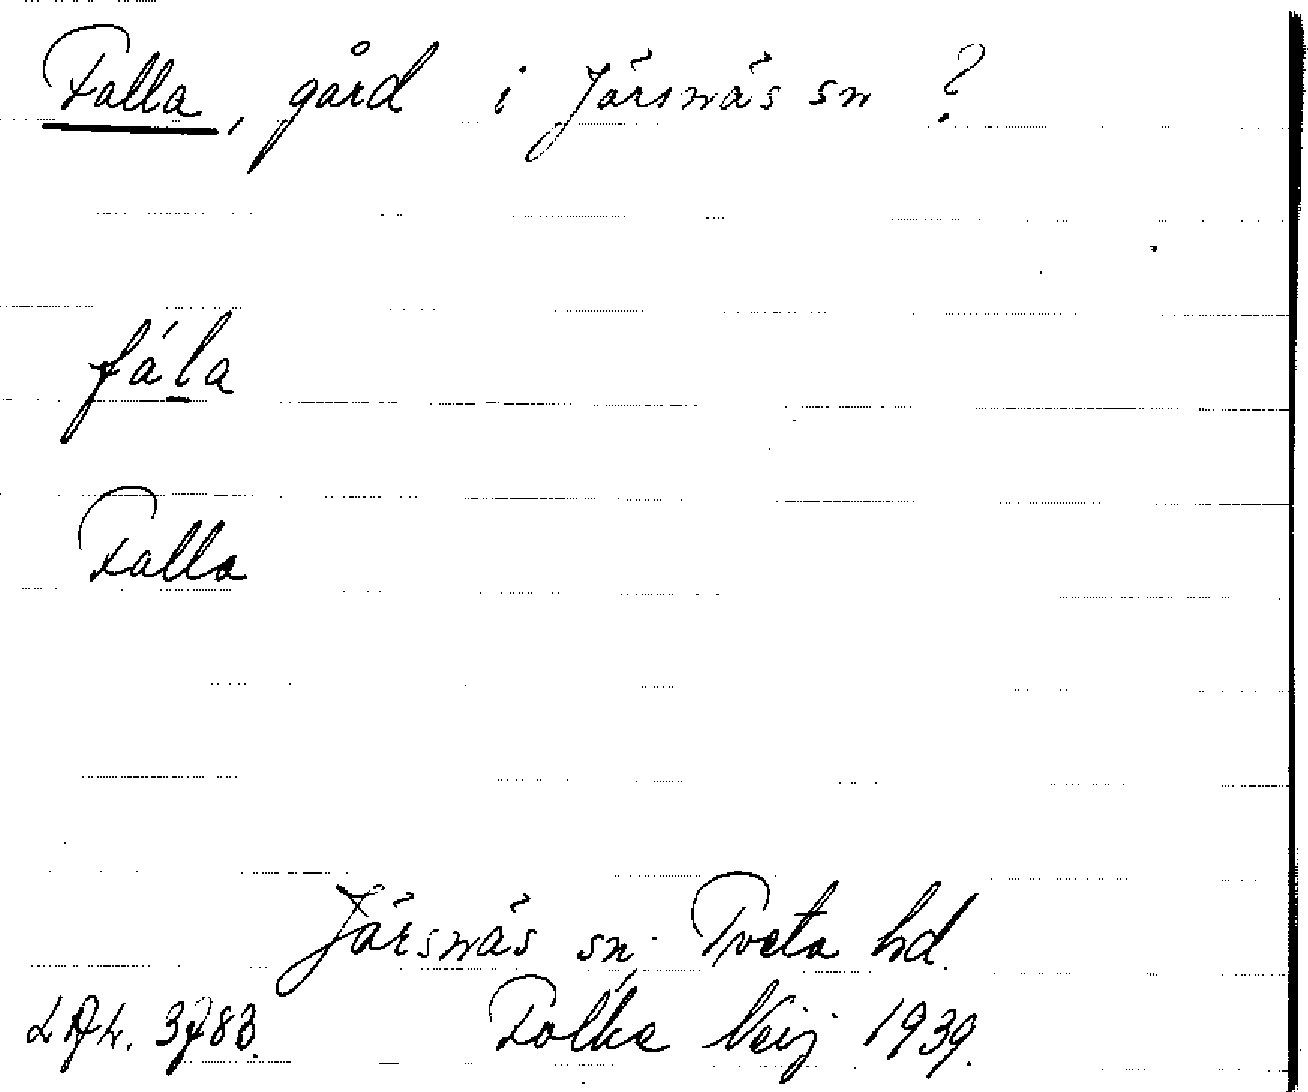 Falla, gård i Järsnäs sn ?
fála
Falla
Järsnäs sn. Tveta hd.
Folke Neij 1939.